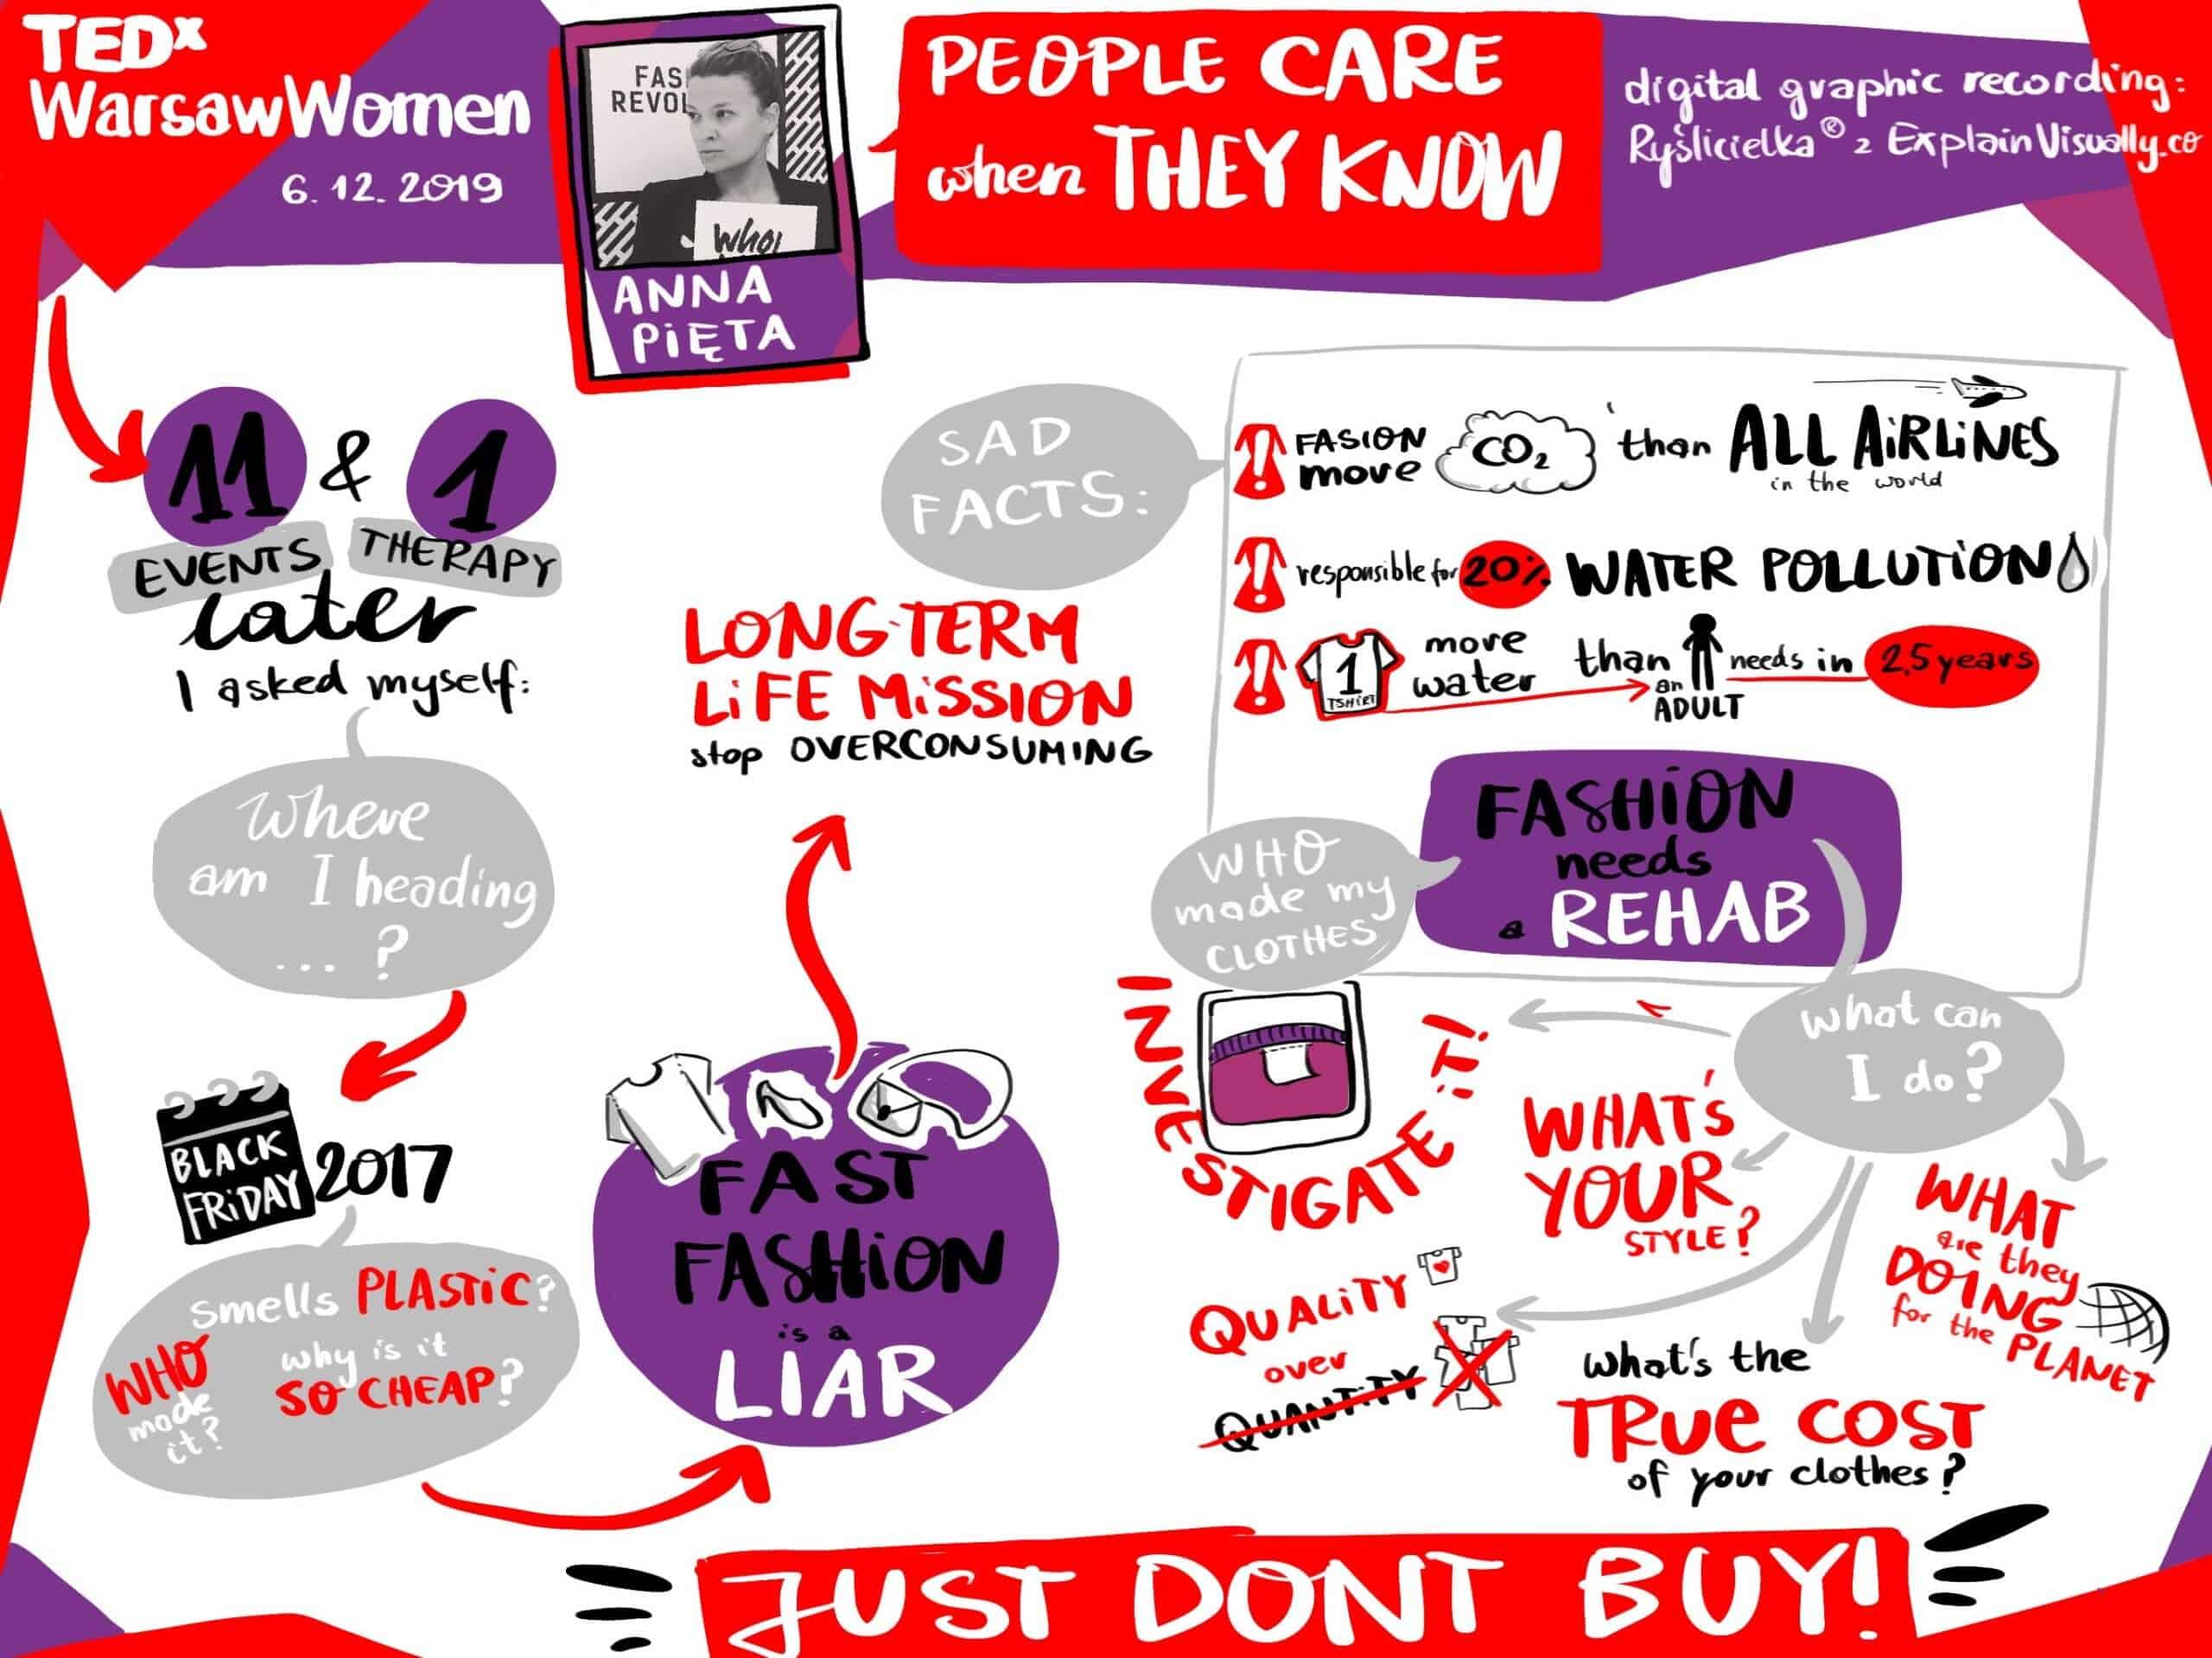 TEDx
WarsawWomen
6. 12. 2019
FAS
REVOL
Who
ANNA
PIĘTA
PEOPLE CARE
when THEY KNOW
digital graphic recording:
Ryślicielka® z ExplainVisually.co
11 & 1
EVENTS THERAPY
later
I asked myself:
Where
am I heading
... ?
BLACK
FRIDAY 2017
Smells PLASTIC?
WHO
made
it?
why is it
SO CHEAP?
FAST
FASHION
is a
LIAR
LONG-TERM
LIFE MISSION
stop OVERCONSUMING
SAD
FACTS:
FASION
move CO2 than ALL AIRLINES
in the world
responsible for 20% WATER POLLUTION
1
TSHIRT
more
water than
an
ADULT
needs in 2,5 years
FASHION
needs
a REHAB
WHO
made my
CLOTHES
INVESTIGATE IT!
What can
I do?
WHAT'S
YOUR
STYLE?
WHAT
are they
DOING
for the PLANET
QUALITY
over
QUANTITY
what's the
TRUE COST
of your clothes?
JUST DONT BUY!